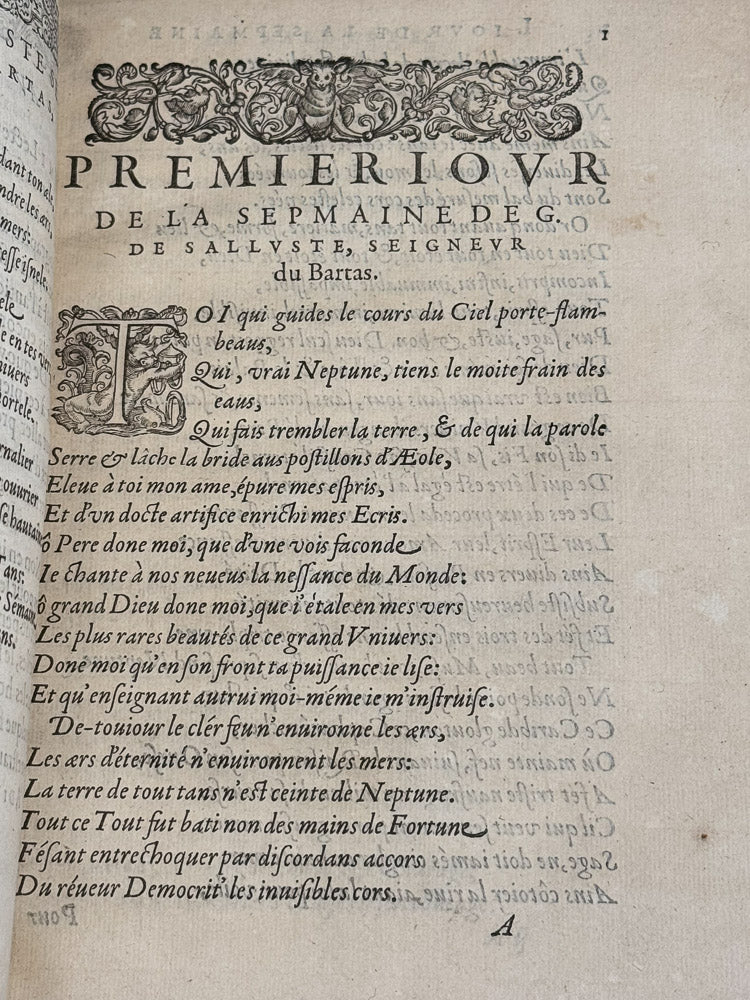 1
PREMIER IOVR
DE LA SEPMAINE DE G.
DE SALLVSTE, SEIGNEVR
du Bartas.
TOI qui guides le cours du Ciel porte-flam-
beaus,
Qui, vrai Neptune, tiens le moite frain des
eaus,
Qui fais trembler la terre, & de qui la parole
Serre & lâche la bride aus postillons d'Æole,
Eleue à toi mon ame, épure mes espris,
Et d'vn docte artifice enrichi mes Ecris.
ô Pere done moi, que d'vne vois faconde
Ie chante à nos neueus la nessance du Monde:
ô grand Dieu done moi, que i'étale en mes vers
Les plus rares beautés de ce grand Vniuers:
Done moi qu'en son front ta puissance ie lise:
Et qu'enseignant autrui moi-méme ie m'instruise.
De-touiour le clér feu n'enuironne les ærs,
Les ærs d'éternité n'enuironnent les mers:
La terre de tout tans n'est ceinte de Neptune.
Tout ce Tout fut bati non des mains de Fortune
Fésant entrechoquer par discordans accors
Du réueur Democrit' les inuisibles cors.
A